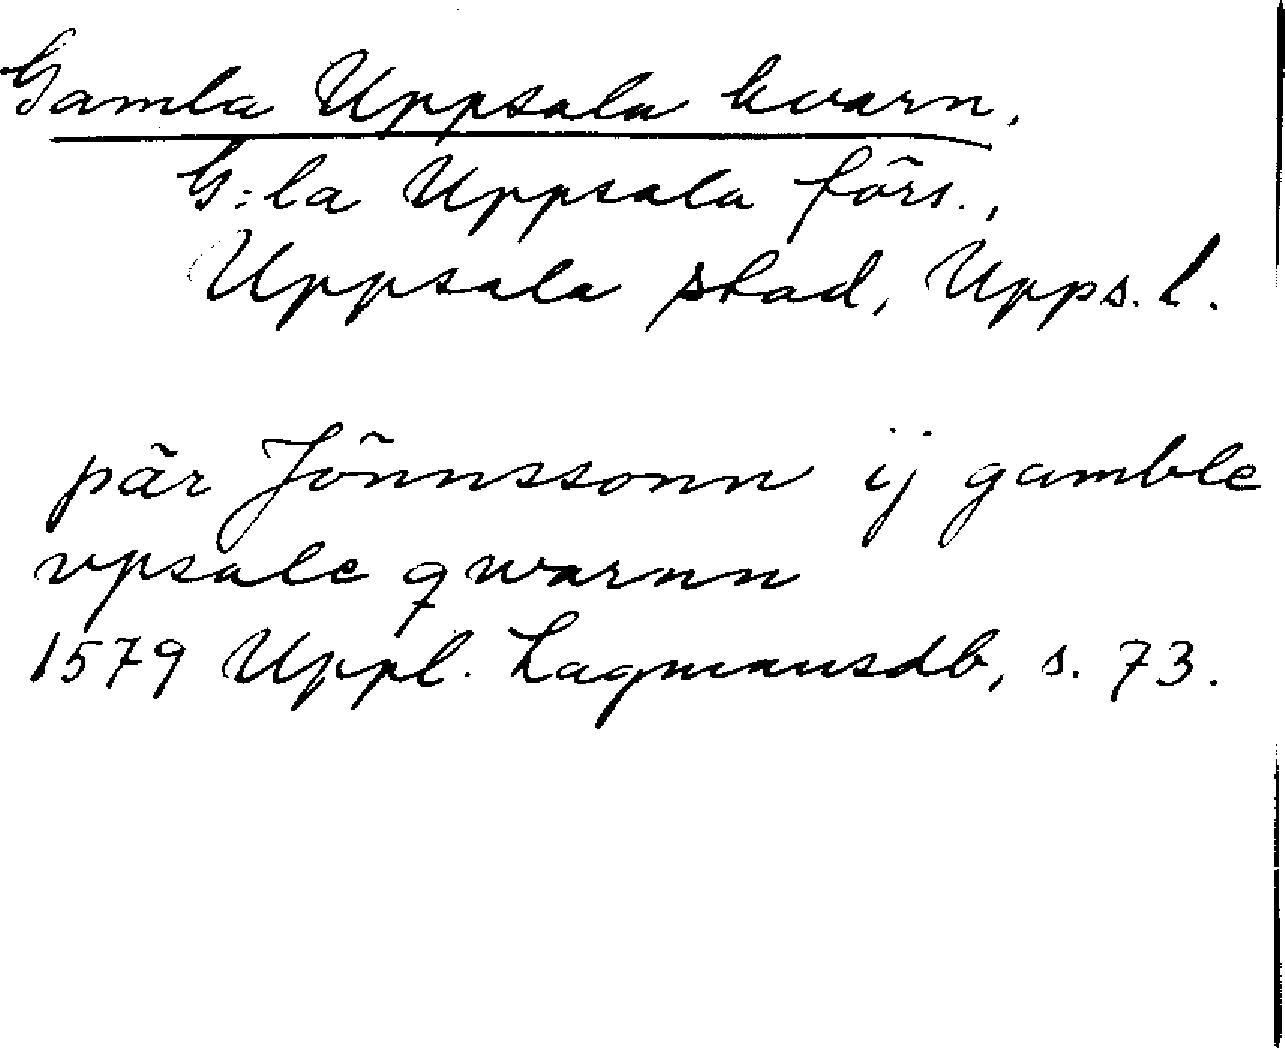 Gamla Uppsala kvarn.
G:la Uppsala förs.,
Uppsala stad, Upps. l.
pär Jönnssonn ij gamble
vpsale qwarnn
1579 Uppl. Lagmansdb, s. 73.